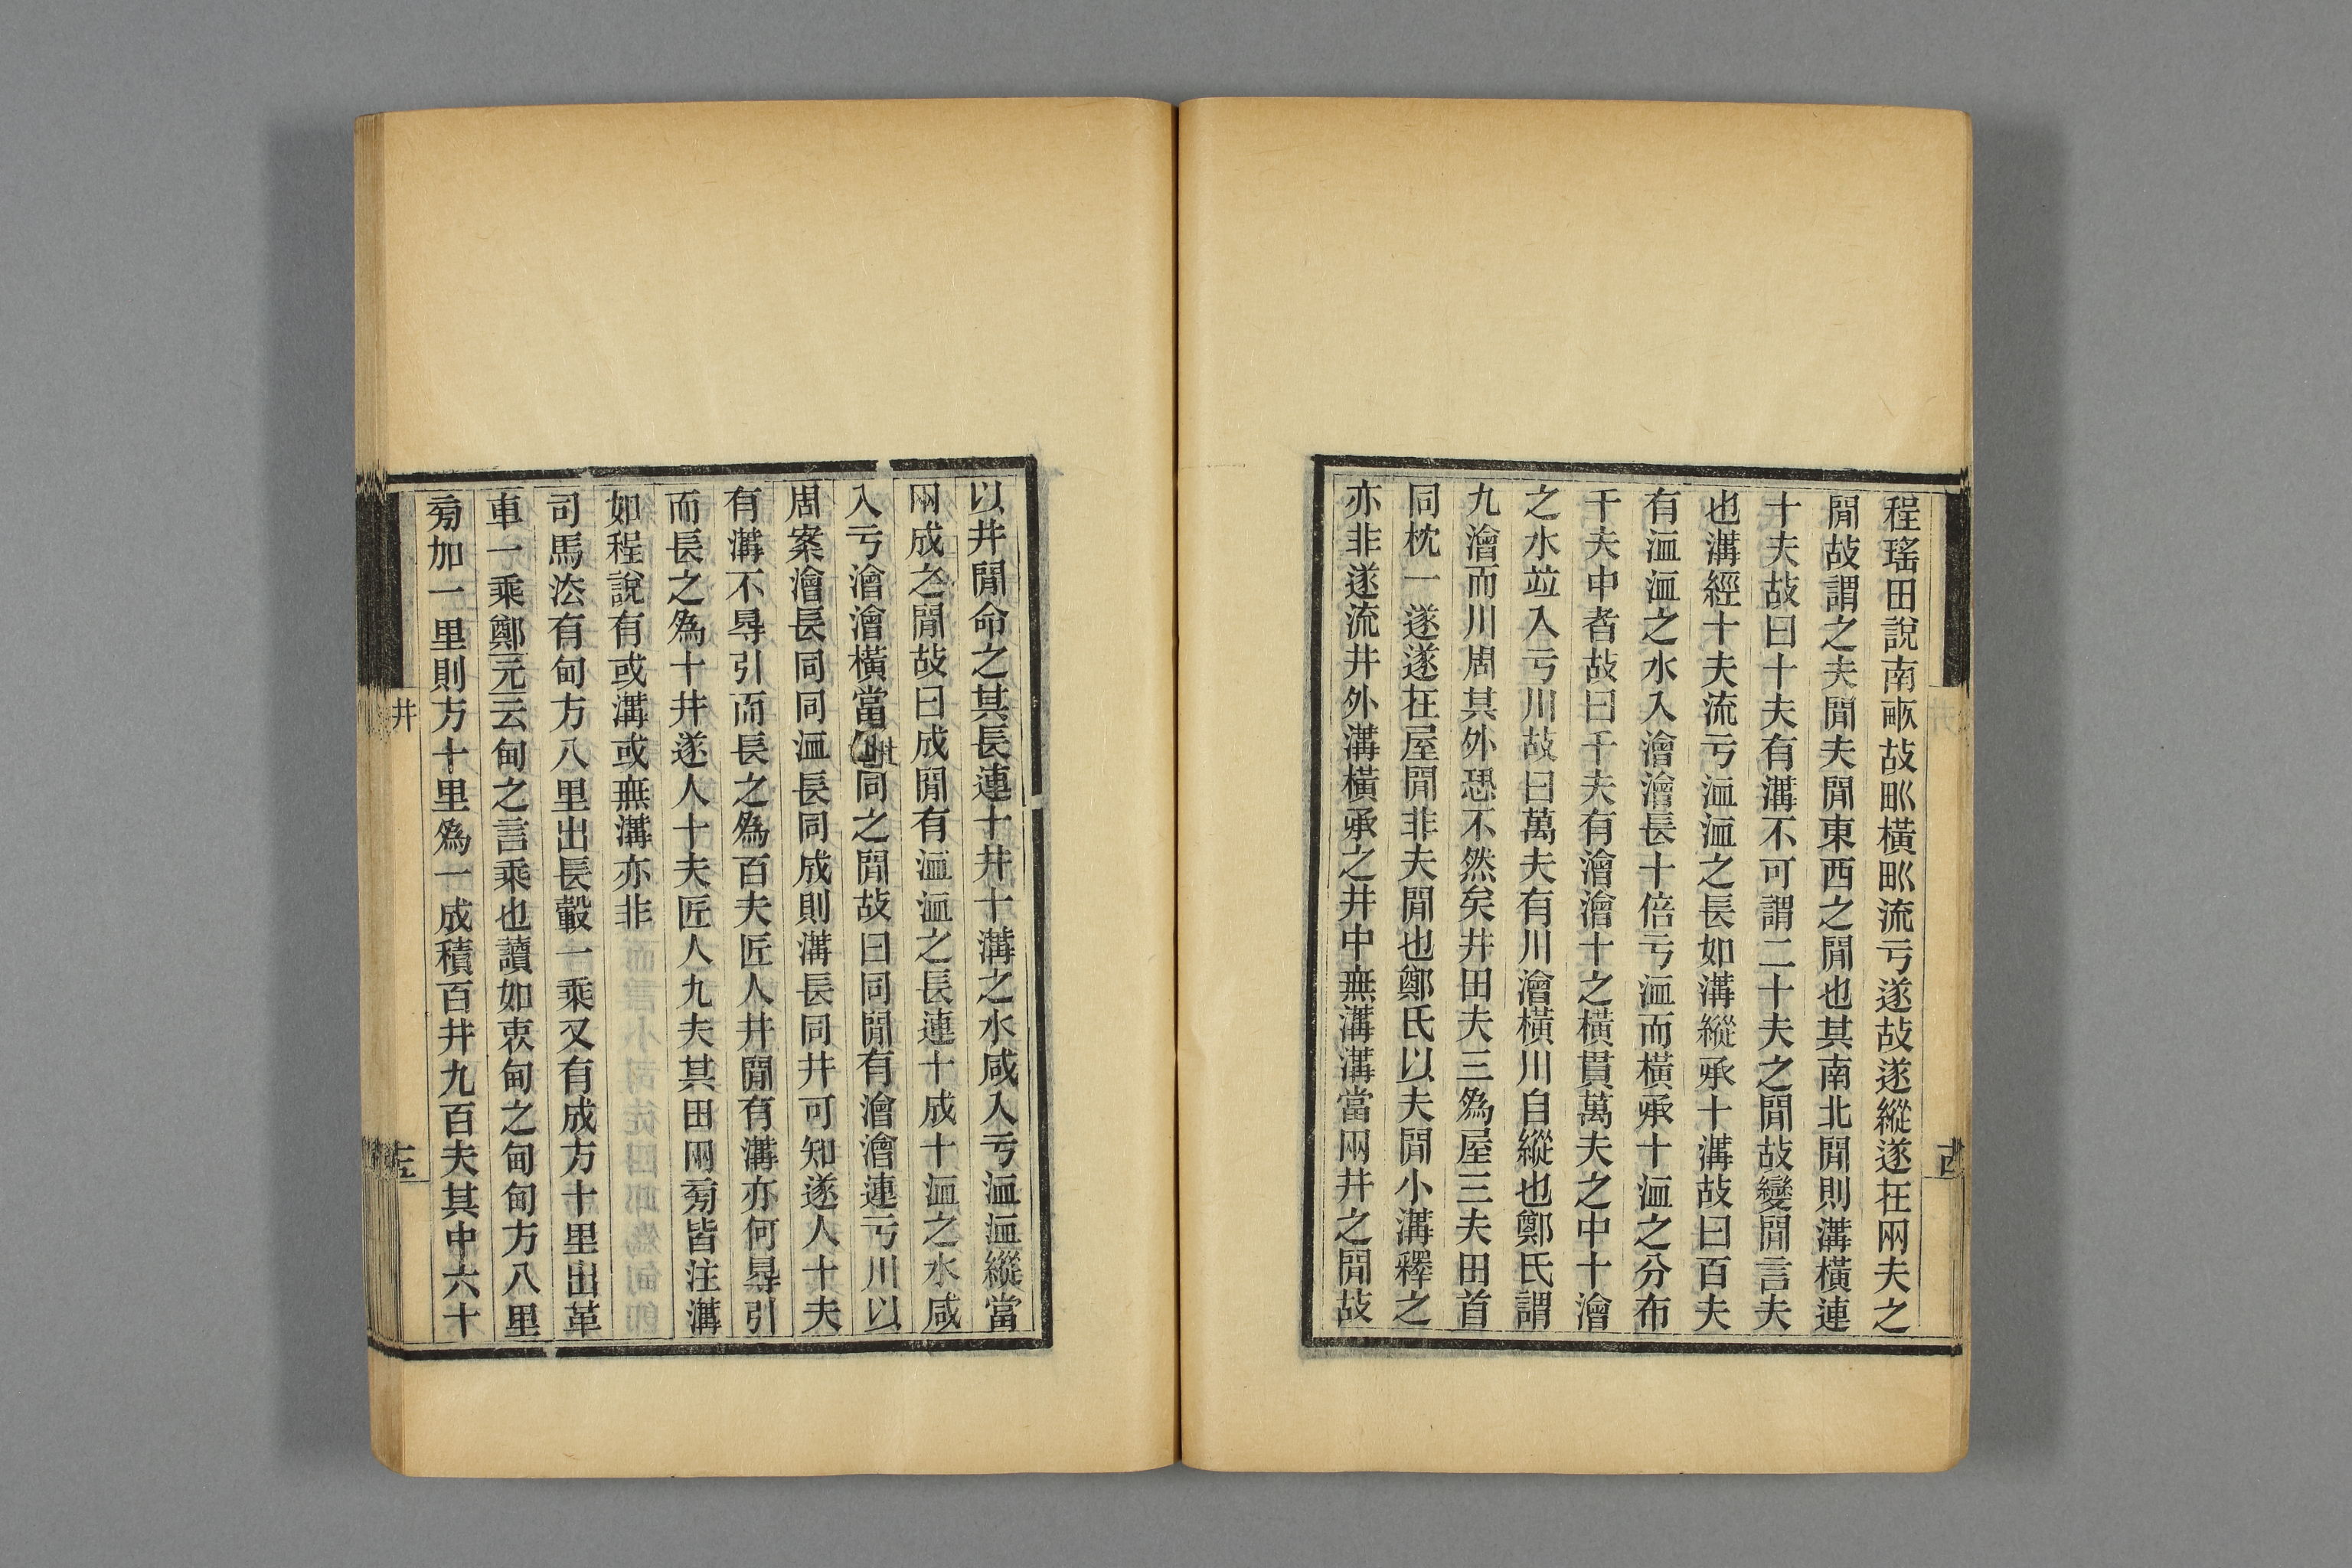 程瑤田說南畞故𤰕橫𤰕流亏遂故遂縱遂在兩夫之
閒故謂之夫閒夫閒東西之閒也其南北閒則溝橫連
十夫故曰十夫有溝不可謂二十夫之閒故變閒言夫
也溝經十夫流亏洫洫之長如溝縱承十溝故曰百夫
有洫洫之水入澮澮長十倍亏洫而橫承十洫之分布
千夫中者故曰千夫有澮澮十之橫貫萬夫之中十澮
之水竝入亏川故曰萬夫有川澮橫川自縱也鄭氏謂
九澮而川周其外恐不然矣井田夫三爲屋三夫田首
同枕一遂遂在屋閒非夫閒也鄭氏以夫閒小溝釋之
亦非遂流井外溝橫承之井中無溝溝當兩井之閒故
古
以井閒命之其長連十井十溝之水咸入亏洫洫縱當
兩成之閒故曰成閒有洫洫之長連十成十洫之水咸
入亏澮澮橫當同之閒故曰同閒有澮澮連亏川以
周案澮長同同洫長同成則溝長同井可知遂人十夫
有溝不㝵引而長之爲百夫匠人井閒有溝亦何㝵引
而長之爲十井遂人十夫匠人九夫其田兩㫄皆注溝
如程說有或溝或無溝亦非
司馬㳒有甸方八里出長轂一乘又有成方十里出革
車一乘鄭元云甸之言乘也讀如衷甸之甸甸方八里
㫄加一里則方十里爲一成積百井九百夫其中六十
井